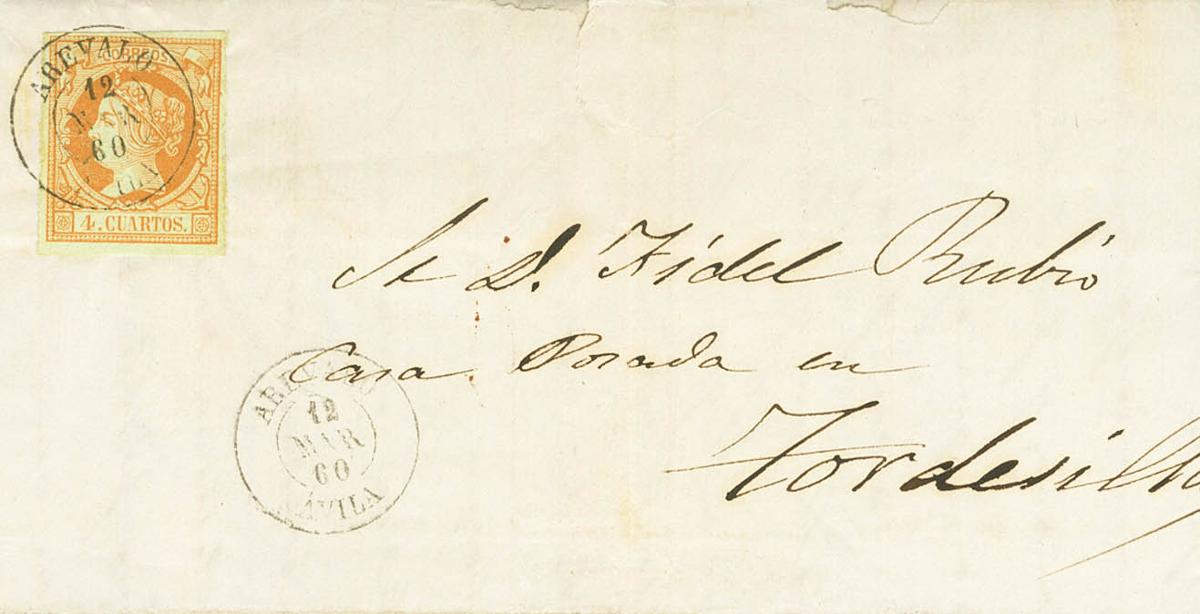 AREVALO
CORREOS
12
MAR
60
4. CUARTOS.
Sr D. Fidel Rubio
Casa Posada en
Tordesill
AREVALO
12
MAR
60
ÁVILA